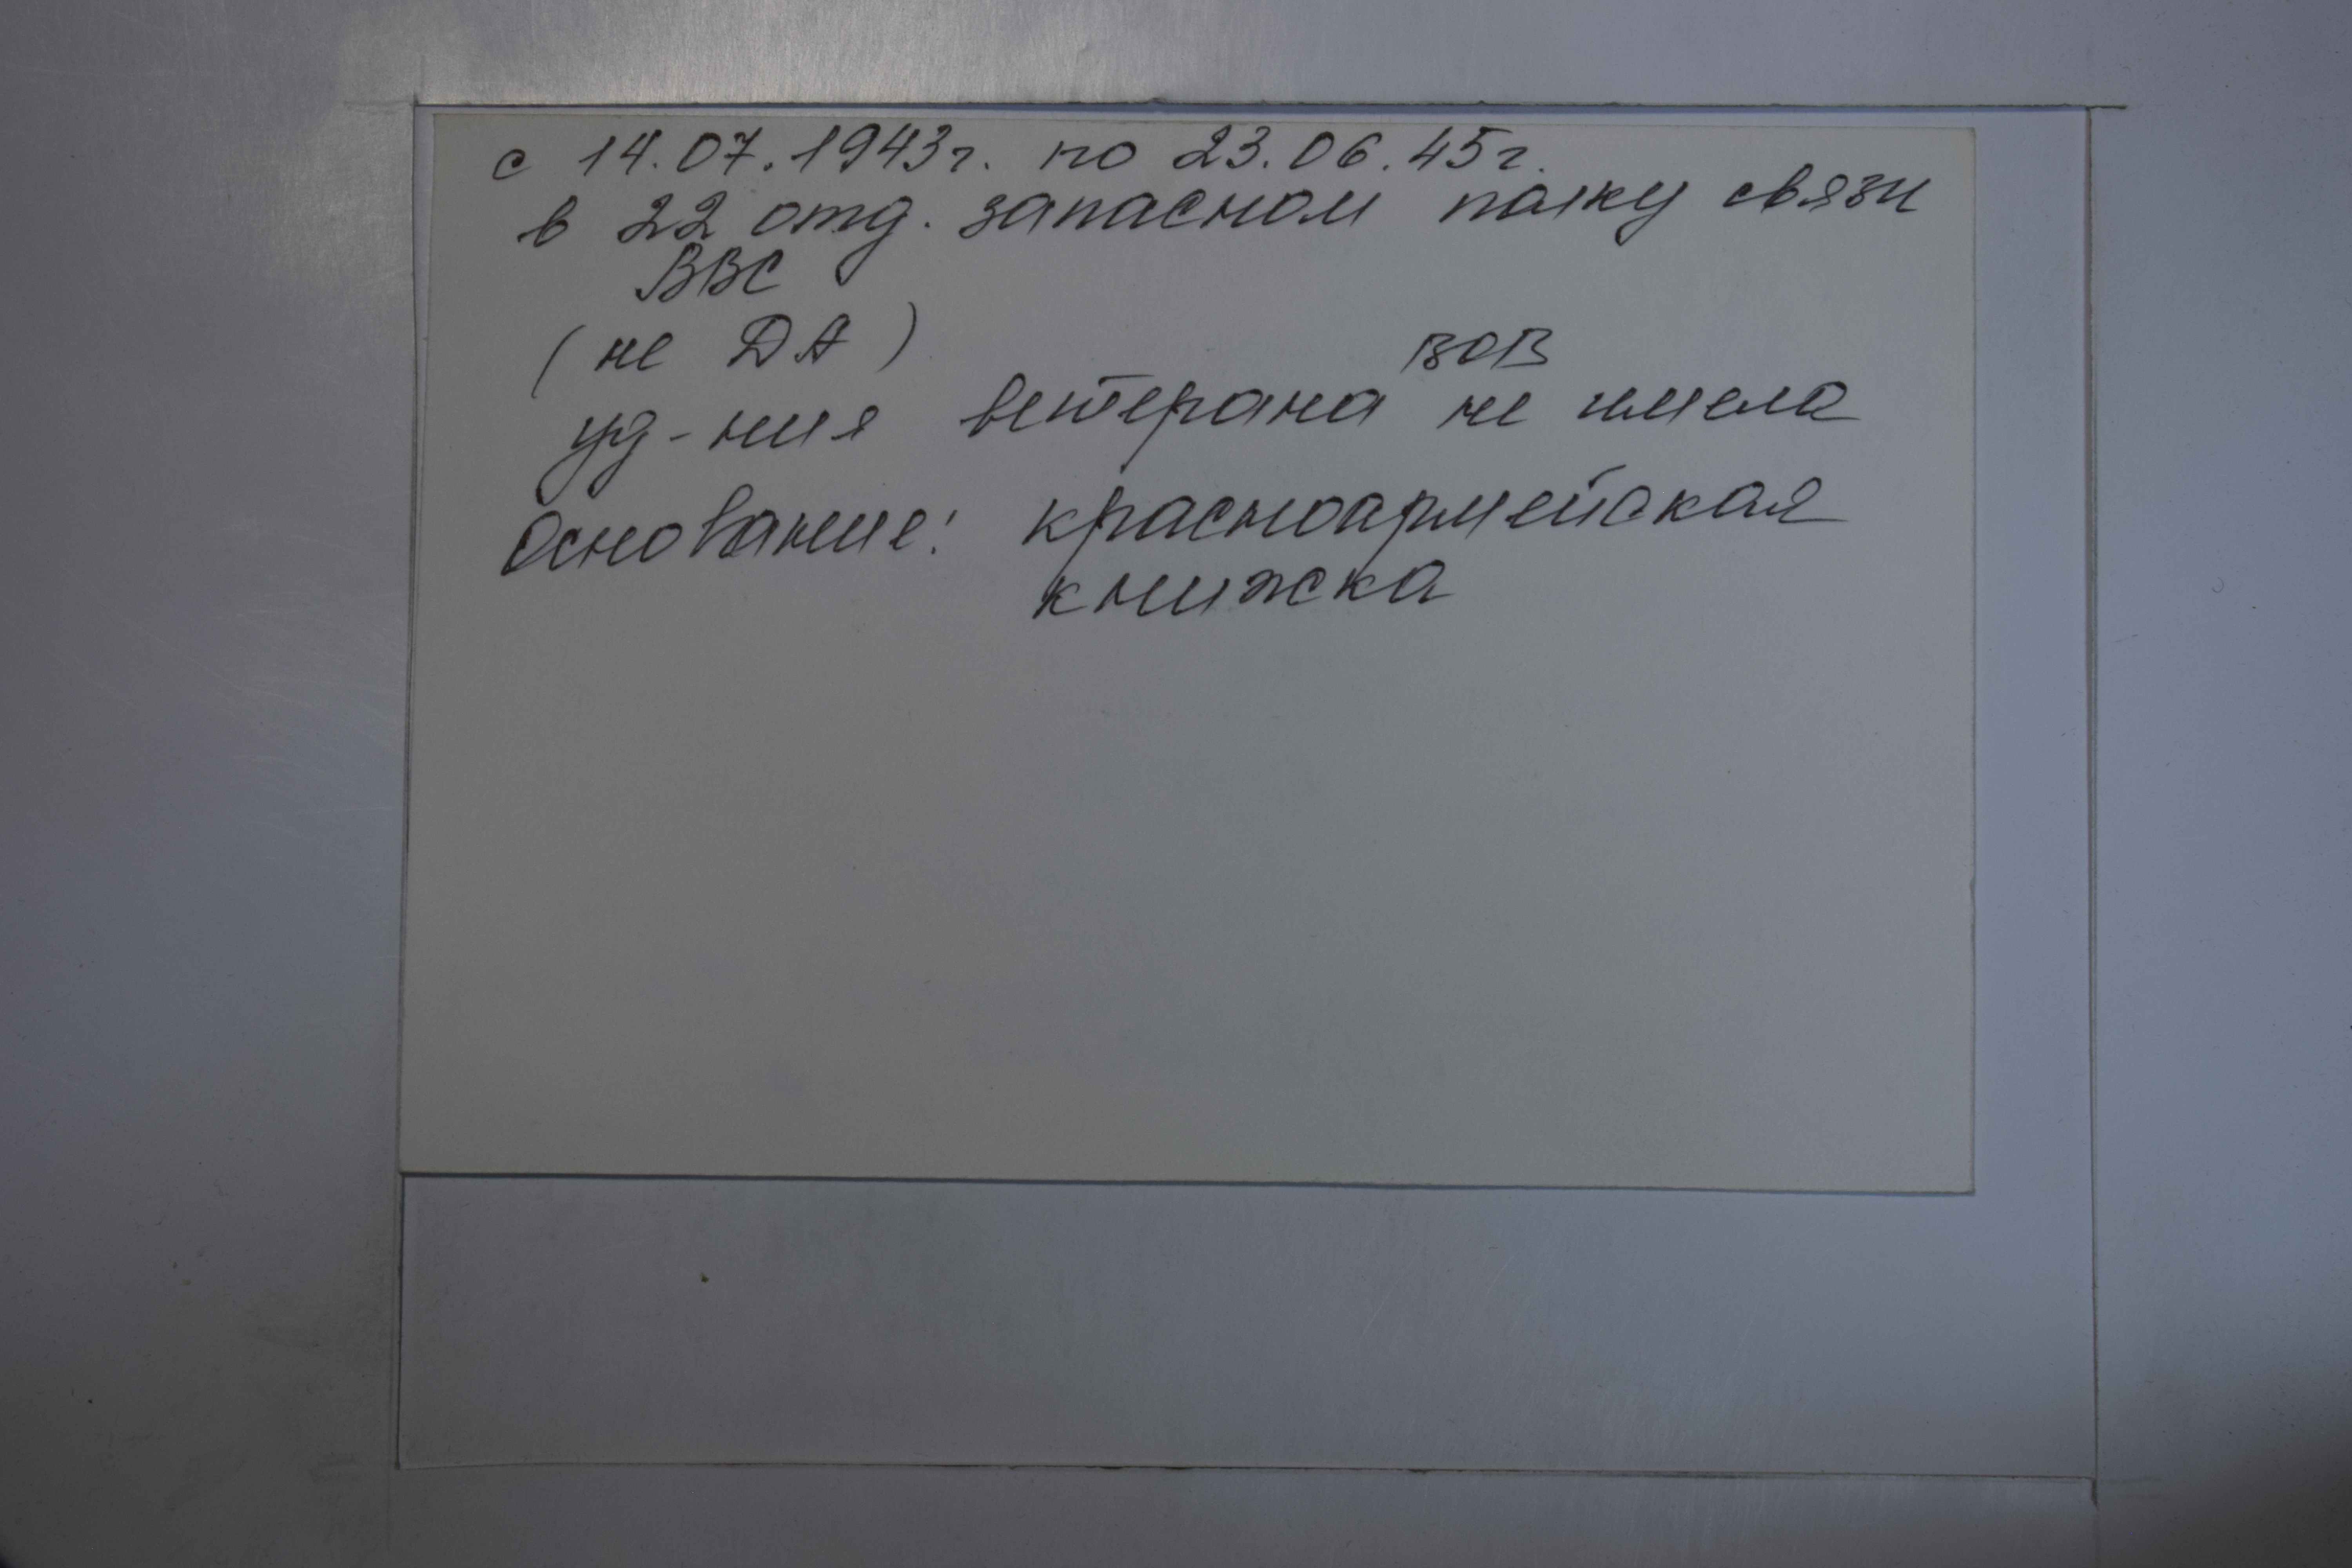 с 14.07.1943г. по 23.06.45г.
в 22 отд. запасном полку связи
ВВС
(не ДА)
ВОВ
уд-ния ветерана не имела
Основание: красноармейская
книжка